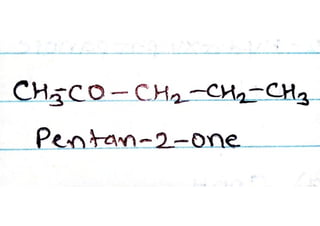 CH₃-CO-CH₂-CH₂-CH₃
Pentan-2-one